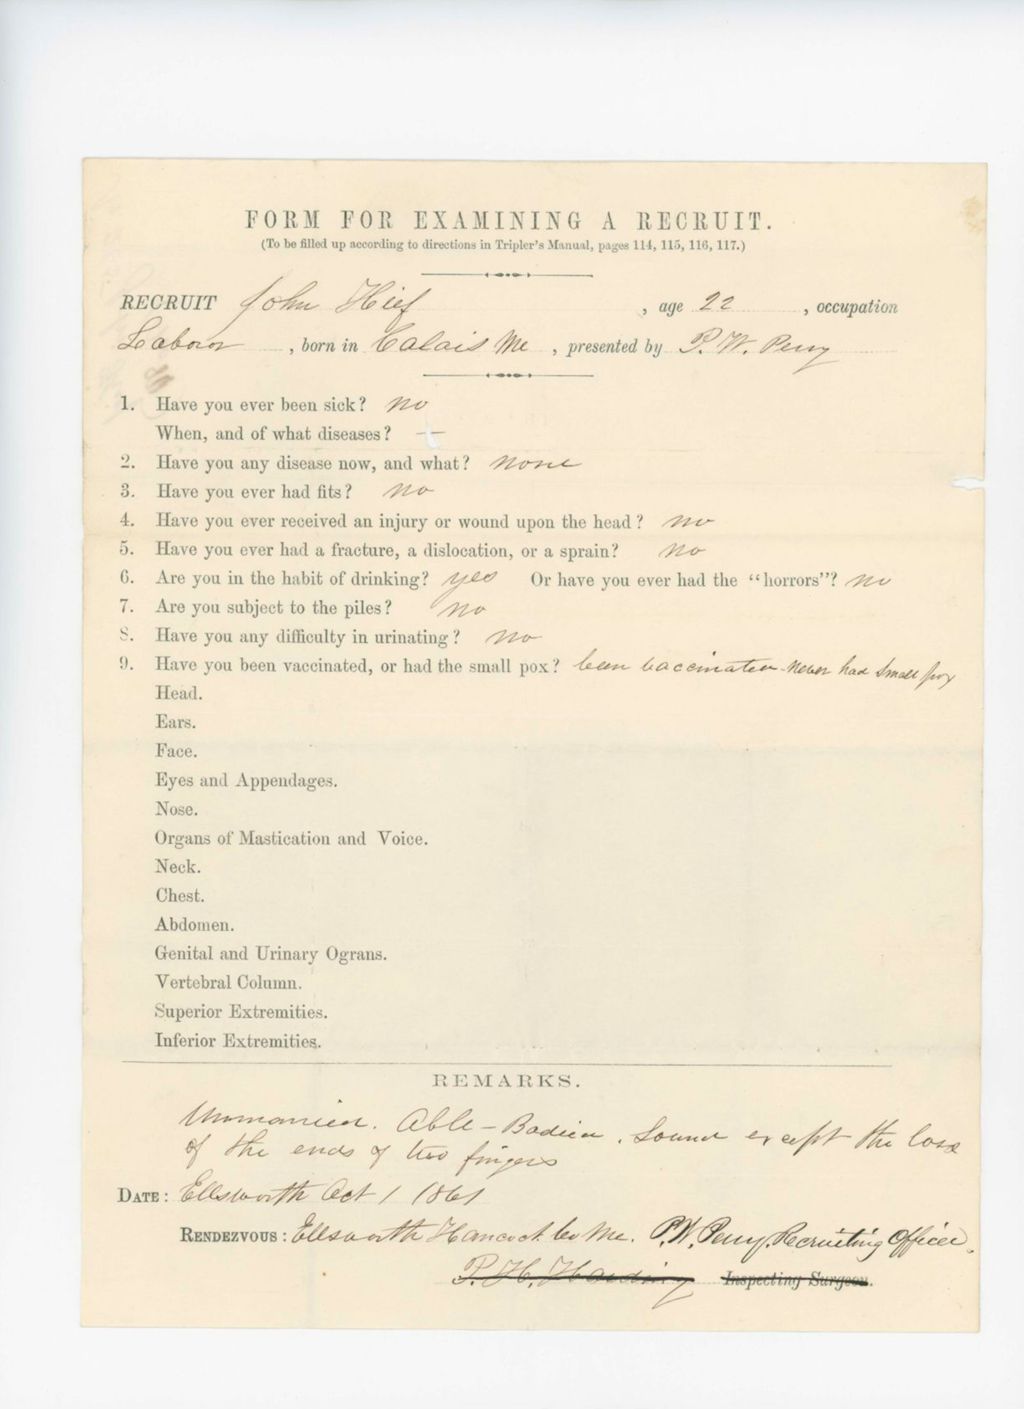 FORM FOR EXAMINING A RECRUIT.
(To be filled up according to directions in Tripler's Manual, pages 114, 115, 116, 117.)
RECRUIT John Hief , age 22 , occupation
Labour , born in Calais Me , presented by P. W. Perry
1. Have you ever been sick? no
When, and of what diseases? —
2. Have you any disease now, and what? none
3. Have you ever had fits? no
4. Have you ever received an injury or wound upon the head? no
5. Have you ever had a fracture, a dislocation, or a sprain? no
6. Are you in the habit of drinking? yes Or have you ever had the "horrors"? no
7. Are you subject to the piles? no
8. Have you any difficulty in urinating? no
9. Have you been vaccinated, or had the small pox? been vaccinated - never had small pox
Head.
Ears.
Face.
Eyes and Appendages.
Nose.
Organs of Mastication and Voice.
Neck.
Chest.
Abdomen.
Genital and Urinary Ograns.
Vertebral Column.
Superior Extremities.
Inferior Extremities.
REMARKS.
Unmarried. Able-Bodied. Sound except the loss
of the ends of two fingers
DATE: Ellsworth Oct 1 1861
RENDEZVOUS: Ellsworth Hancock Co Me. P. W. Perry, Recruiting Officer.
P. H. Harding Inspecting Surgeon.